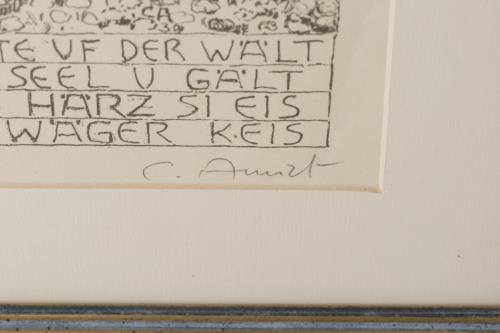 CA
TE UF DER WÄLT
SEEL U GÄLT
HÄRZ SI EIS
WÄGER K.EIS